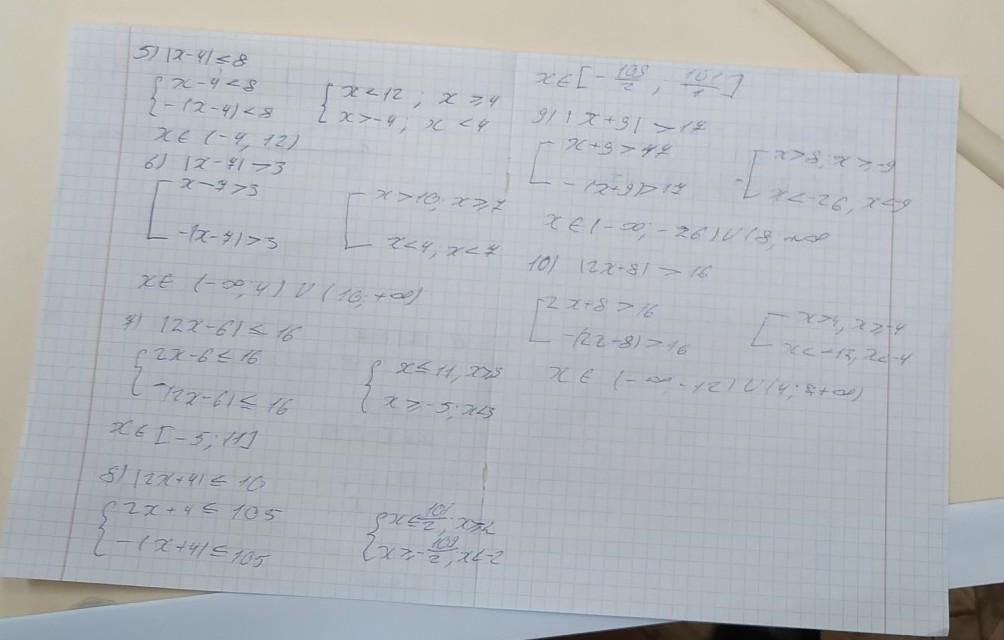 5) |x-4|<8
{ x-4<8
-(x-4)<8
{ x<12 ; x≥4
x>-4; x<4
x∈ (-4, 12)
6) |x-7|>3
[ x-7>3
-(x-7)>3
[ x>10; x≥7
x<4; x<7
x∈ (-∞; 4) ∪ (10; +∞)
7) |2x-6| ≤ 16
{ 2x-6 ≤ 16
-(2x-6) ≤ 16
{ x≤11, x≥3
x≥-5; x<3
x∈ [-5; 11]
8) |2x+4| ≤ 10
{ 2x+4 ≤ 105
-(x+4) ≤ 105
{ x≤101/2; x≥-2
x≥-109/2, x<-2
x∈[-109/2 ; 101/1]
9) |x+9| >17
[ x+9>17
-(x+9)>17
[ x>8; x≥-9
x<-26, x<-9
x∈(-∞; -26)∪(8; +∞
10) |2x+8| > 16
[ 2x+8>16
-(2x-8)>16
[ x>4, x≥-4
x<-12, x<-4
x∈ (-∞ -12) ∪ (4; +∞)